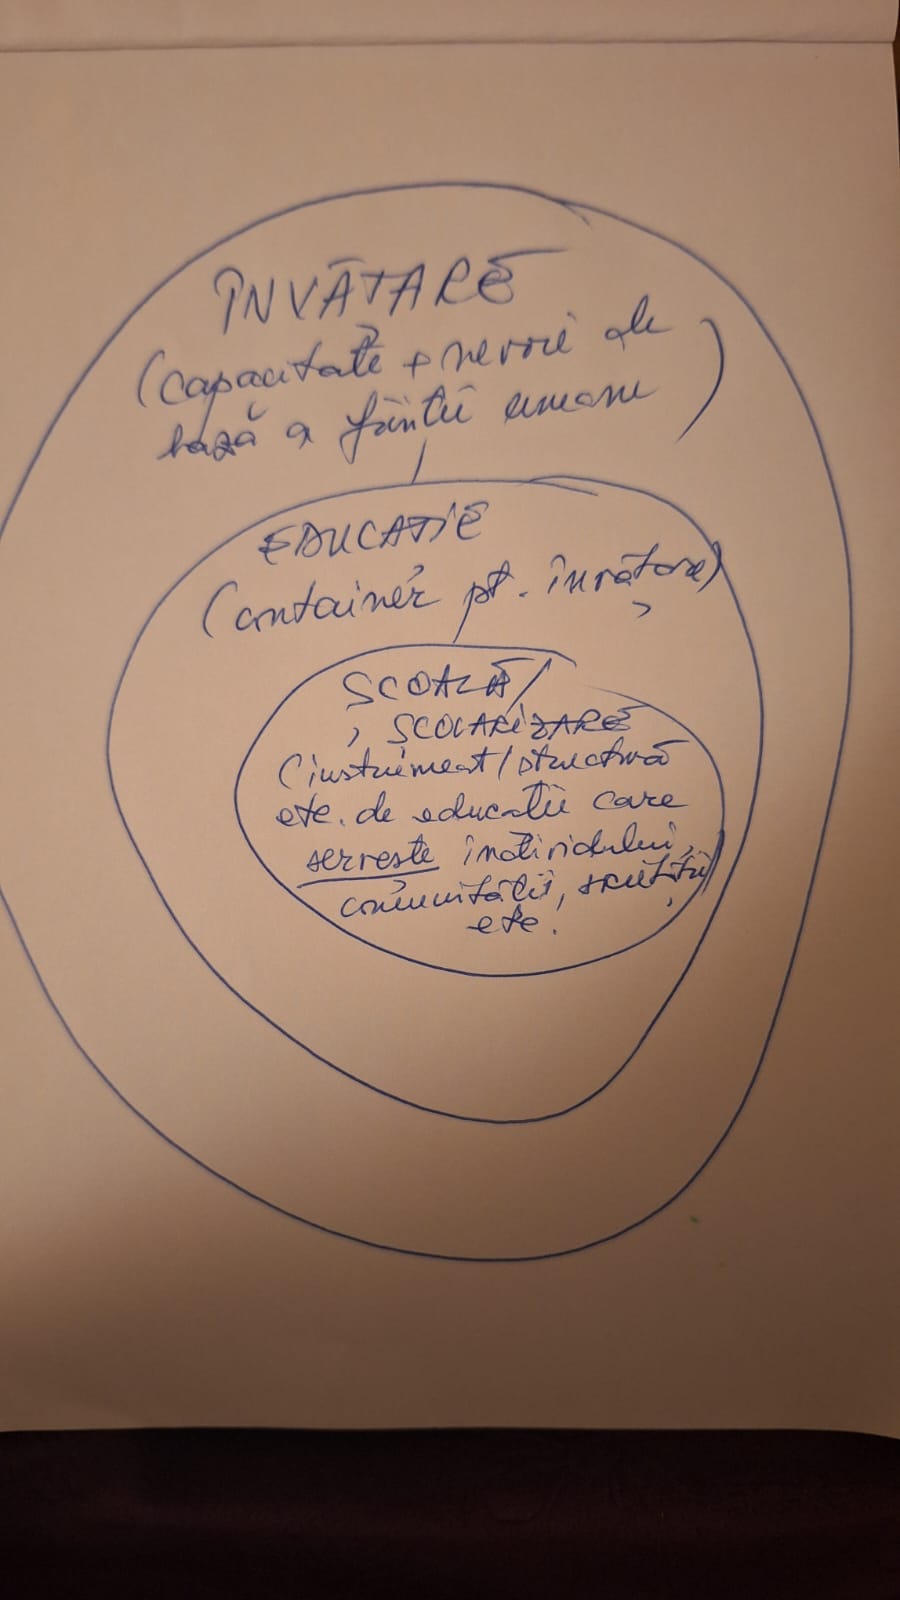 ÎNVĂȚARE
(capacitate + nevoie de
bază a ființei umane)
EDUCAȚIE
(container pt. învățare)
ȘCOALĂ/
ȘCOLARIZARE
(instrument/structură
etc. de educație care
servește individului,
comunității, societății)
etc.